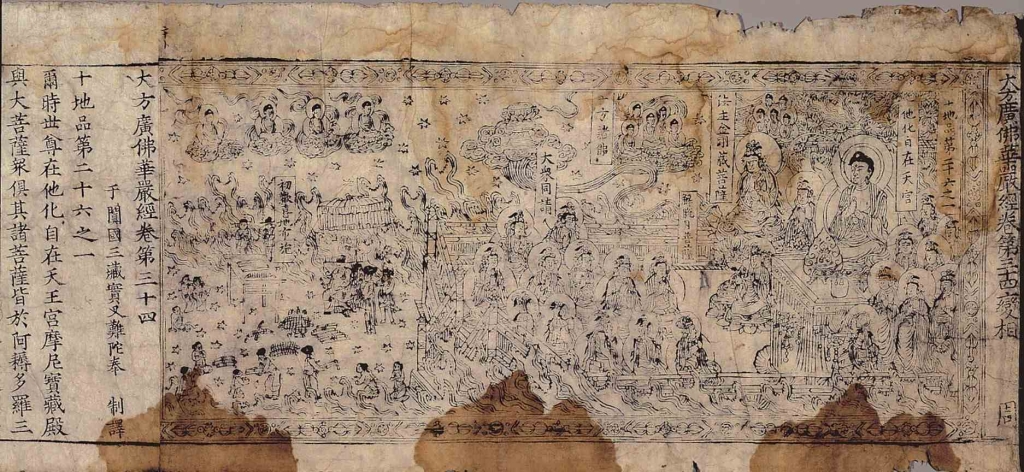 大方廣佛華嚴經卷第三十四變相
十地品第二十六之一
他化自在天宮
法主金剛藏菩薩
十方諸佛
大衆同請
初歡喜地
大方廣佛華嚴經卷第三十四
于闐國三藏實叉難陁奉 制譯
十地品第二十六之一
爾時世尊在他化自在天王宮摩尼寶藏殿
與大菩薩衆俱其諸菩薩皆於阿耨多羅三